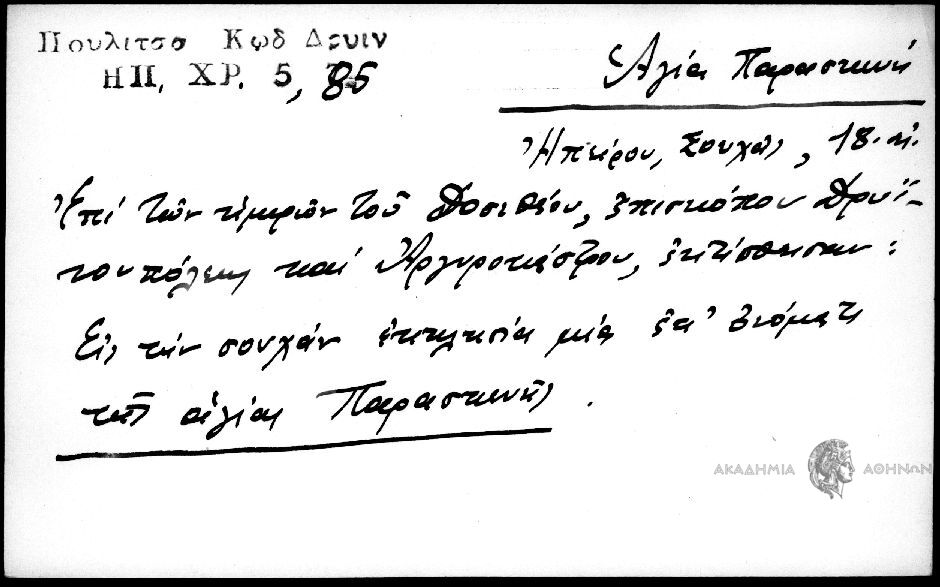 Πουλιτσα Κωδ Δρυιν
ΗΠ. ΧΡ. 5, 85
Ἁγία Παρασκευή
Ἠπείρου, Σουχᾶς, 18. αἰ.
Ἐπί τῶν ἡμερῶν τοῦ Δοσιθέου, ἐπισκόπου Δρυϊ-
νουπόλεως καί Ἀργυροκάστρου, ἐκτίσθησαν:
Εἰς τήν σουχάν ἐκκλησία μία ἐπ' ὀνόματι
τῆς ἁγίας Παρασκευῆς.
ΑΚΑΔΗΜΙΑ ΑΘΗΝΩΝ